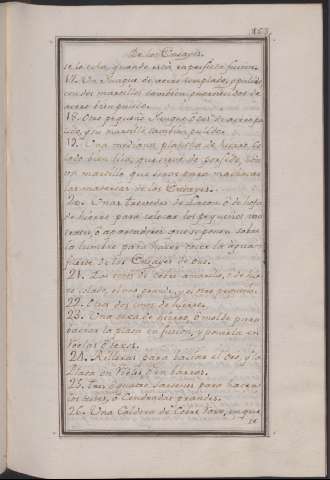 De los Ensayes.
se le echa, quando està en perfecta fusion.
17. Un Yunque de acero templado, y pulido
con dos martillos tambien guarnecidos de
acero bien pulido.
18. Otro pequeño Yunque ò tas de acero pu-
lido, y su martillo tambien pulido.
19. Una mediana plancha de hierro co-
lado bien lisa, que sirve de porfido, con
un martillo que sirve para machacar
las materias de los Ensayes.
20. Unas trevedes de Laton ò de hoja
de hierro para colocar los pequeños ma-
traces, ò apartadores que se ponen sobre
la lumbre para hacer cocer la agua
fuerte de los Ensayes de oro.
21. Dos conos de cobre amarillo, ò de hier-
ro colado, el uno grande, y el otro pequeño.
22. Una dos conos de hierro.
23. Una taza de hierro, ò molde para
baciar la plata en fusion, y ponerla en
rieles ò texos.
24. Rilleras para baciar el oro, y la
Plata en rieles, ò en barras.
25. Tres ò quatro para hacer
las copelas, ò Cendradas grandes.
26. Una Caldera de Cobre roxo, en que
se